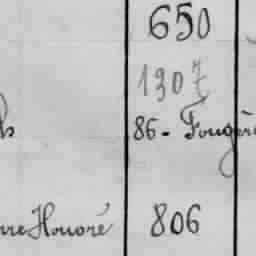 650
1307
86 - Fougè
rre Honoré 806